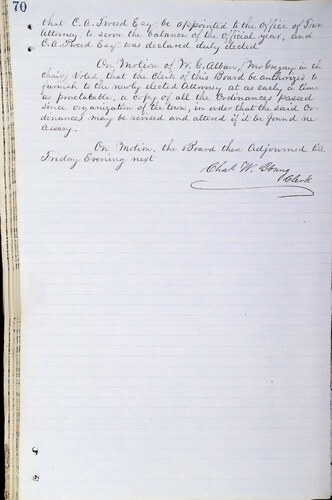 70
that C. A. Tweed Esq. be appointed to the Office of Town
Attorney to serve the balance of the official year, and
C. A. Tweed Esq. was declared duly elected
On Motion of W. G. Alban, Mr Gregory in the
chair, Voted, that the Clerk of this Board be authorized to
furnish to the newly elected Attorney at as early a time
as practicable, a copy of all the Ordinances passed
since organization of the town, in order that the said Or-
dinances may be revised and altered if it be found ne
cessary.
On Motion, the Board then Adjourned till
Friday Evening next
Chas W. Young
Clerk